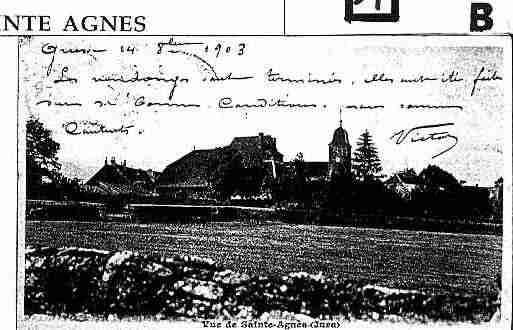 NTE AGNES
B
14 8bre 1903
Les vendanges sont terminées, elles ont été faites
dans de bonnes Conditions. nous sommes
Contents.
Victor
Vue de Sainte-Agnès (Jura)